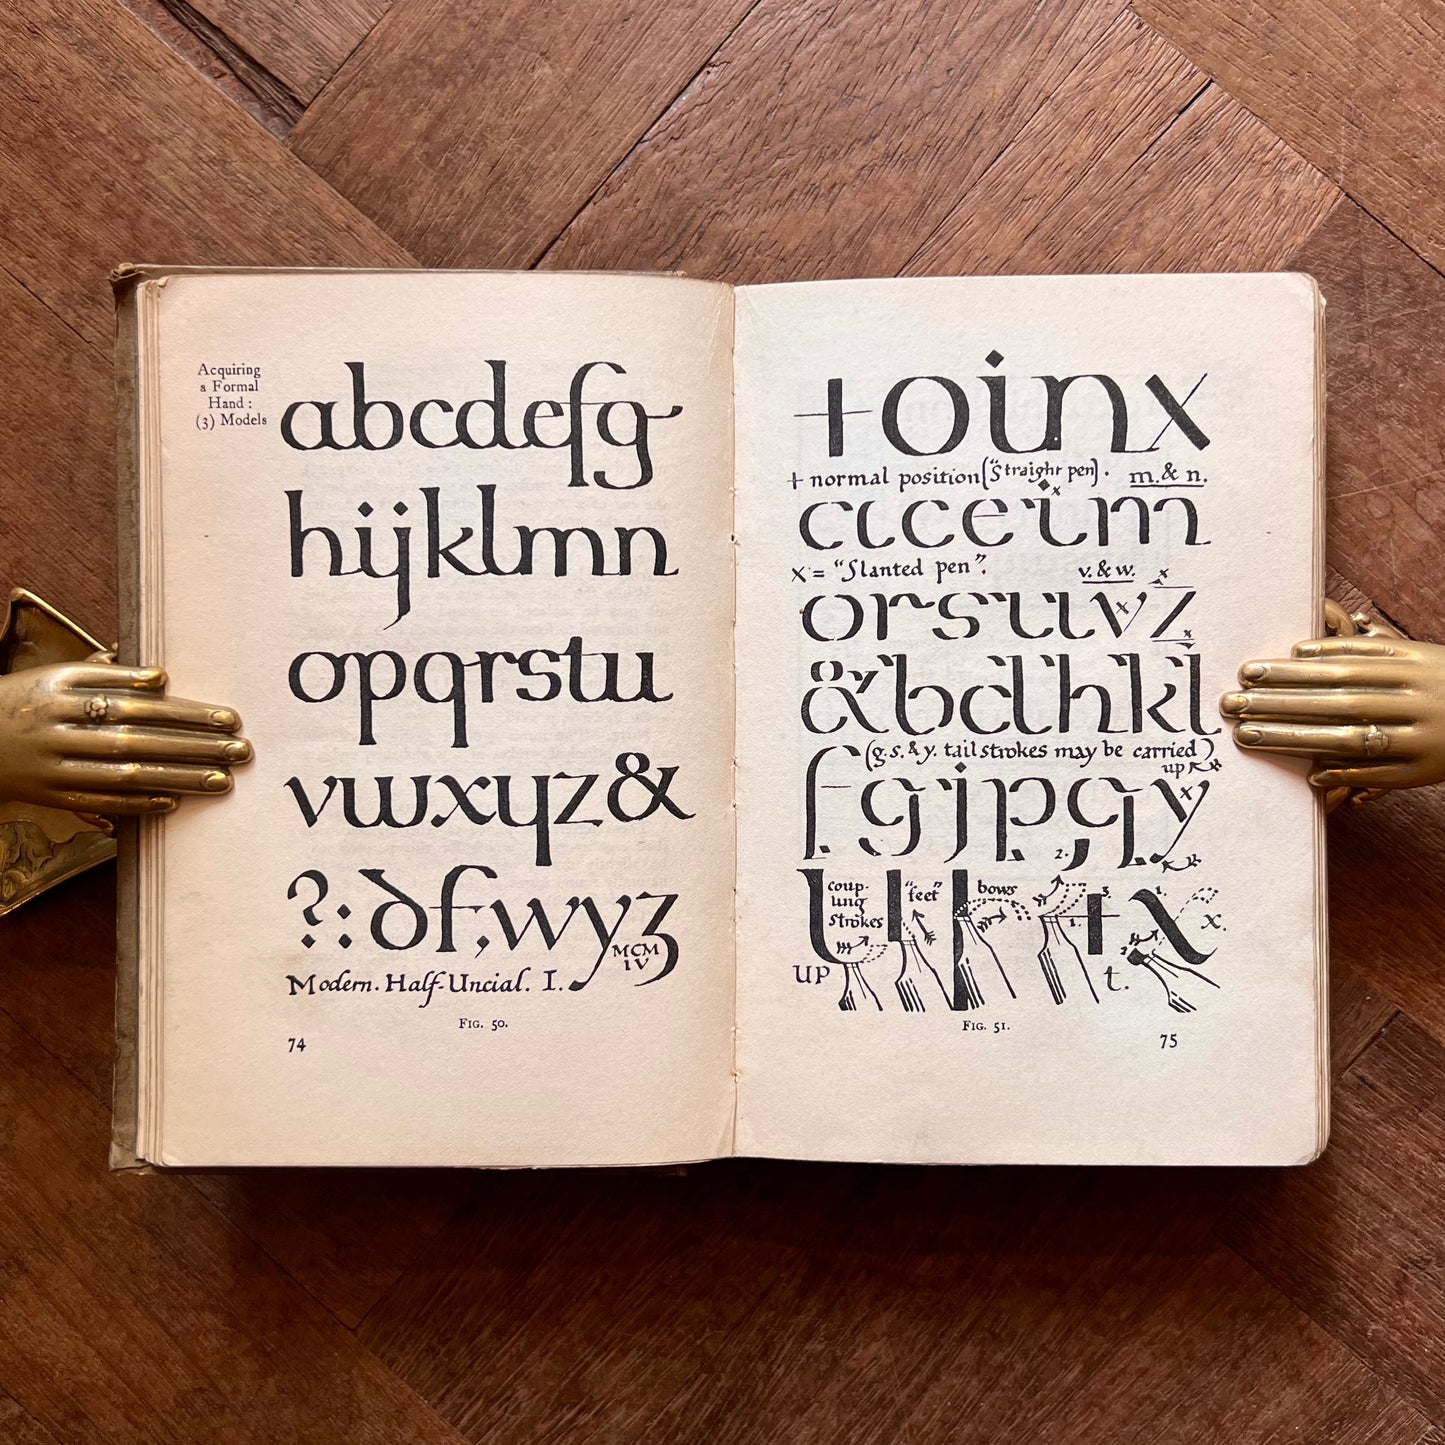 Acquiring
a Formal
Hand :
(3) Models
abcdefg
hijklmn
opqrstu
vwxyz&
?:df,wyz
MCM
IV
Modern. Half-Uncial. I.
Fig. 50.
74
+oinx
+ normal position ("Straight pen). m. & n.
acceim
x = "Slanted pen". v. & w. x
orsuvz
&bdhkl
(g. s. & y. tail strokes may be carried)
up
fgjpqy
2.
coup-
ling
strokes
"feet"
bows
3.
1.
1.
2
x.
up
t.
Fig. 51.
75